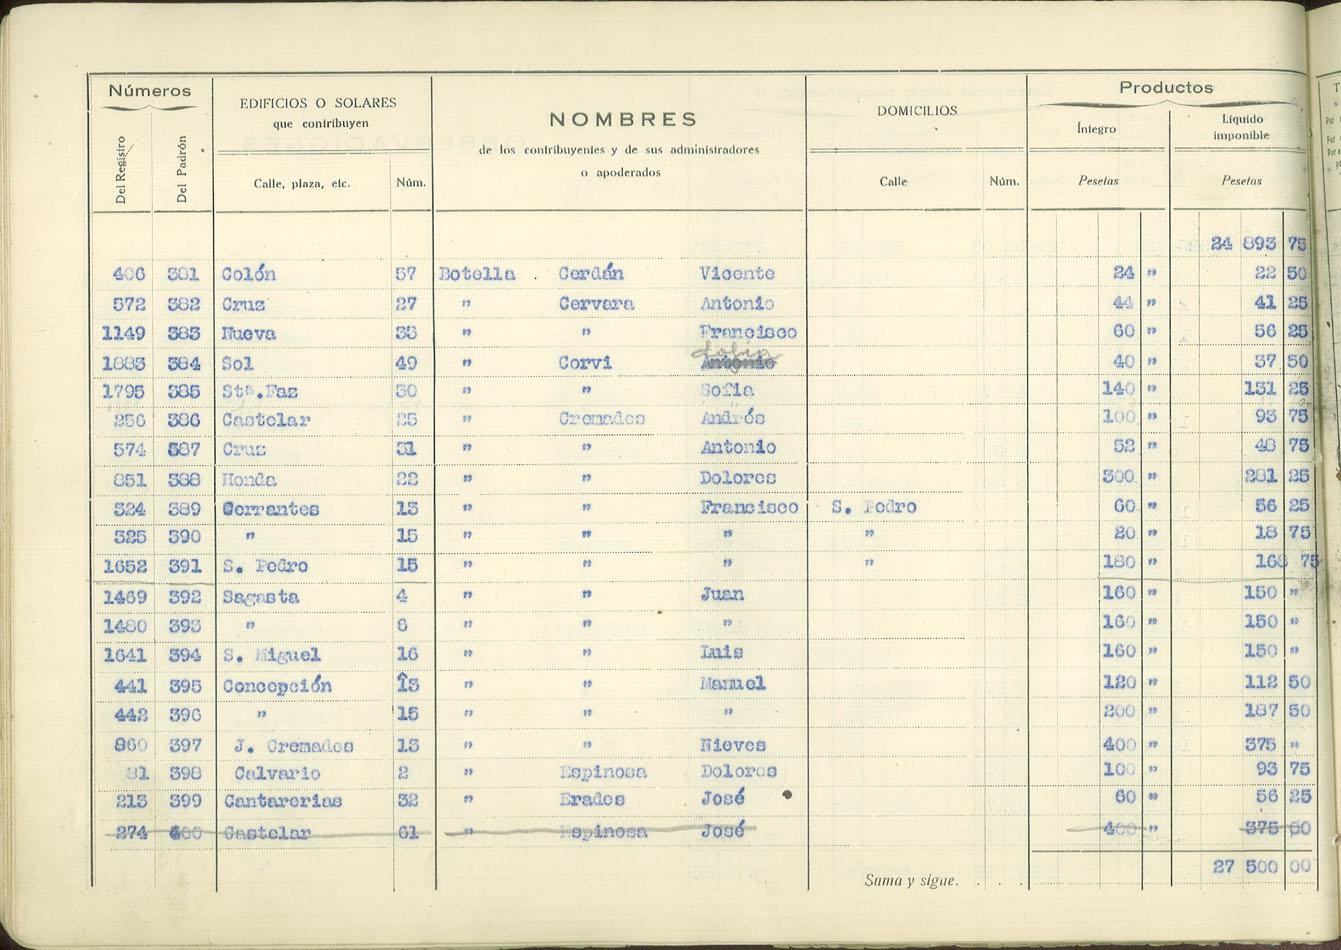 Números EDIFICIOS O SOLARES que contribuyen NOMBRES de los contribuyentes y de sus administradores o apoderados DOMICILIOS Productos
Íntegro Líquido imponible
Del Registro Del Padrón Calle, plaza, etc. Núm. Calle Núm. Pesetas Pesetas
24 893 75
406 381 Colón 57 Botella . Cerdán Vicente 24 " 22 50
572 382 Cruz 27 " Cervara Antonio 44 " 41 25
1149 383 Nueva 38 " " Francisco 60 " 56 25
Sofia
1883 384 Sol 49 " Corvi Antonio 40 " 37 50
1795 385 Stª.Faz 30 " " Sofia 140 " 131 25
256 386 Castelar 25 " Cremades Andrés 100 " 93 75
574 387 Cruz 31 " " Antonio 52 " 48 75
851 388 Honda 22 " " Dolores 300 " 281 25
324 389 Cerrantes 13 " " Francisco S. Pedro 60 " 56 25
325 390 " 15 " " " " 20 " 18 75
1652 391 S. Pedro 15 " " " " 180 " 168 75
1469 392 Sagasta 4 " " Juan 160 " 150 "
1480 393 " 6 " " " 160 " 150 "
1641 394 S. Miguel 16 " " Luis 160 " 150 "
441 395 Concepción 13 " " Manuel 120 " 112 50
442 396 " 15 " " " 200 " 187 50
860 397 J. Cremades 13 " " Nieves 400 " 375 "
81 398 Calvario 2 " Espinosa Dolores 100 " 93 75
213 399 Cantarerias 32 " Erades José 60 " 56 25
274 400 Castelar 61 " Espinosa José 400 " 375 00
27 500 00
Suma y sigue. . . .